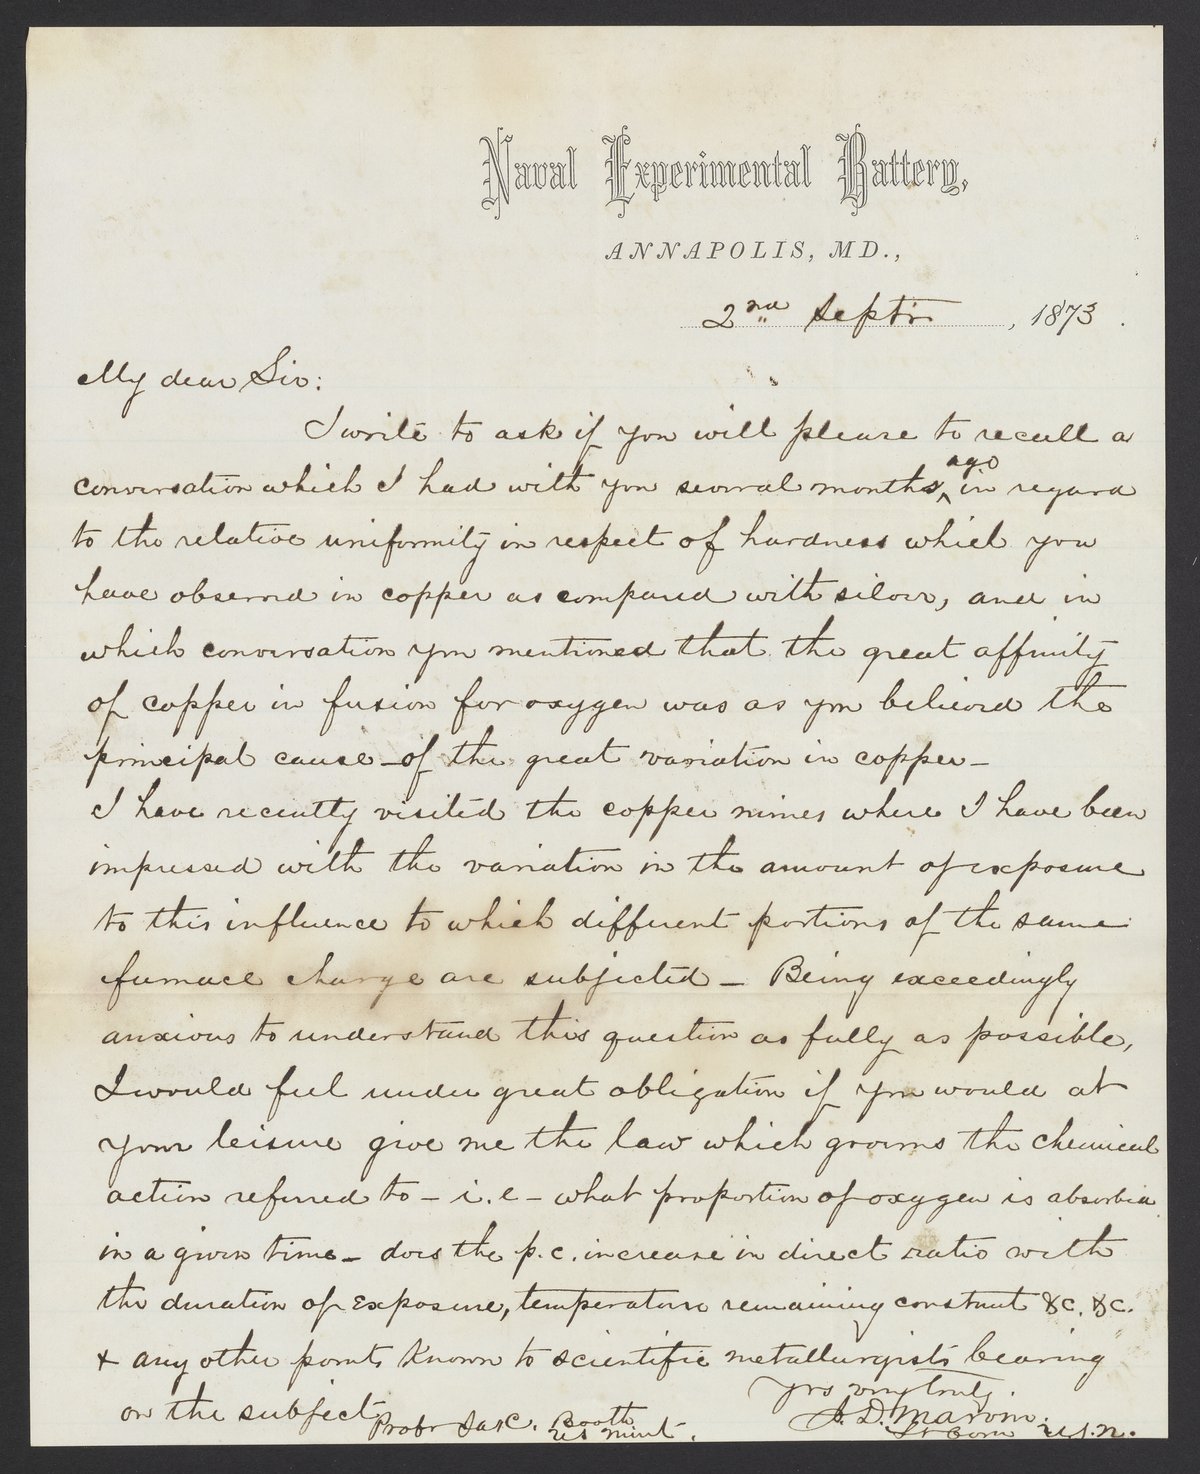 Naval Experimental Battery,
ANNAPOLIS, MD.,
2nd Septr, 1873.
My dear Sir:
I write to ask if you will please to recall a
conversation which I had with you several months ago in regard
to the relative uniformity in respect of hardness which you
have observed in copper as compared with silver, and in
which conversation you mentioned that the great affinity
of copper in fusion for oxygen was as you believed the
principal cause of the great variation in copper –
I have recently visited the copper mines where I have been
impressed with the variation in the amount of exposure
to this influence to which different portions of the same
furnace charge are subjected – Being exceedingly
anxious to understand this question as fully as possible,
I would feel under great obligation if you would at
your leisure give me the law which governs the chemical
action referred to – i.e – what proportion of oxygen is absorbed
in a given time – does the p.c. increase in direct ratio with
the duration of exposure, temperature remaining constant &c. &c.
+ any other points known to scientific metallurgists bearing
on the subject
yrs very truly.
J. D. Marvin.
Lt Com U.S.N.
Profr Jas C. Booth
US Mint.